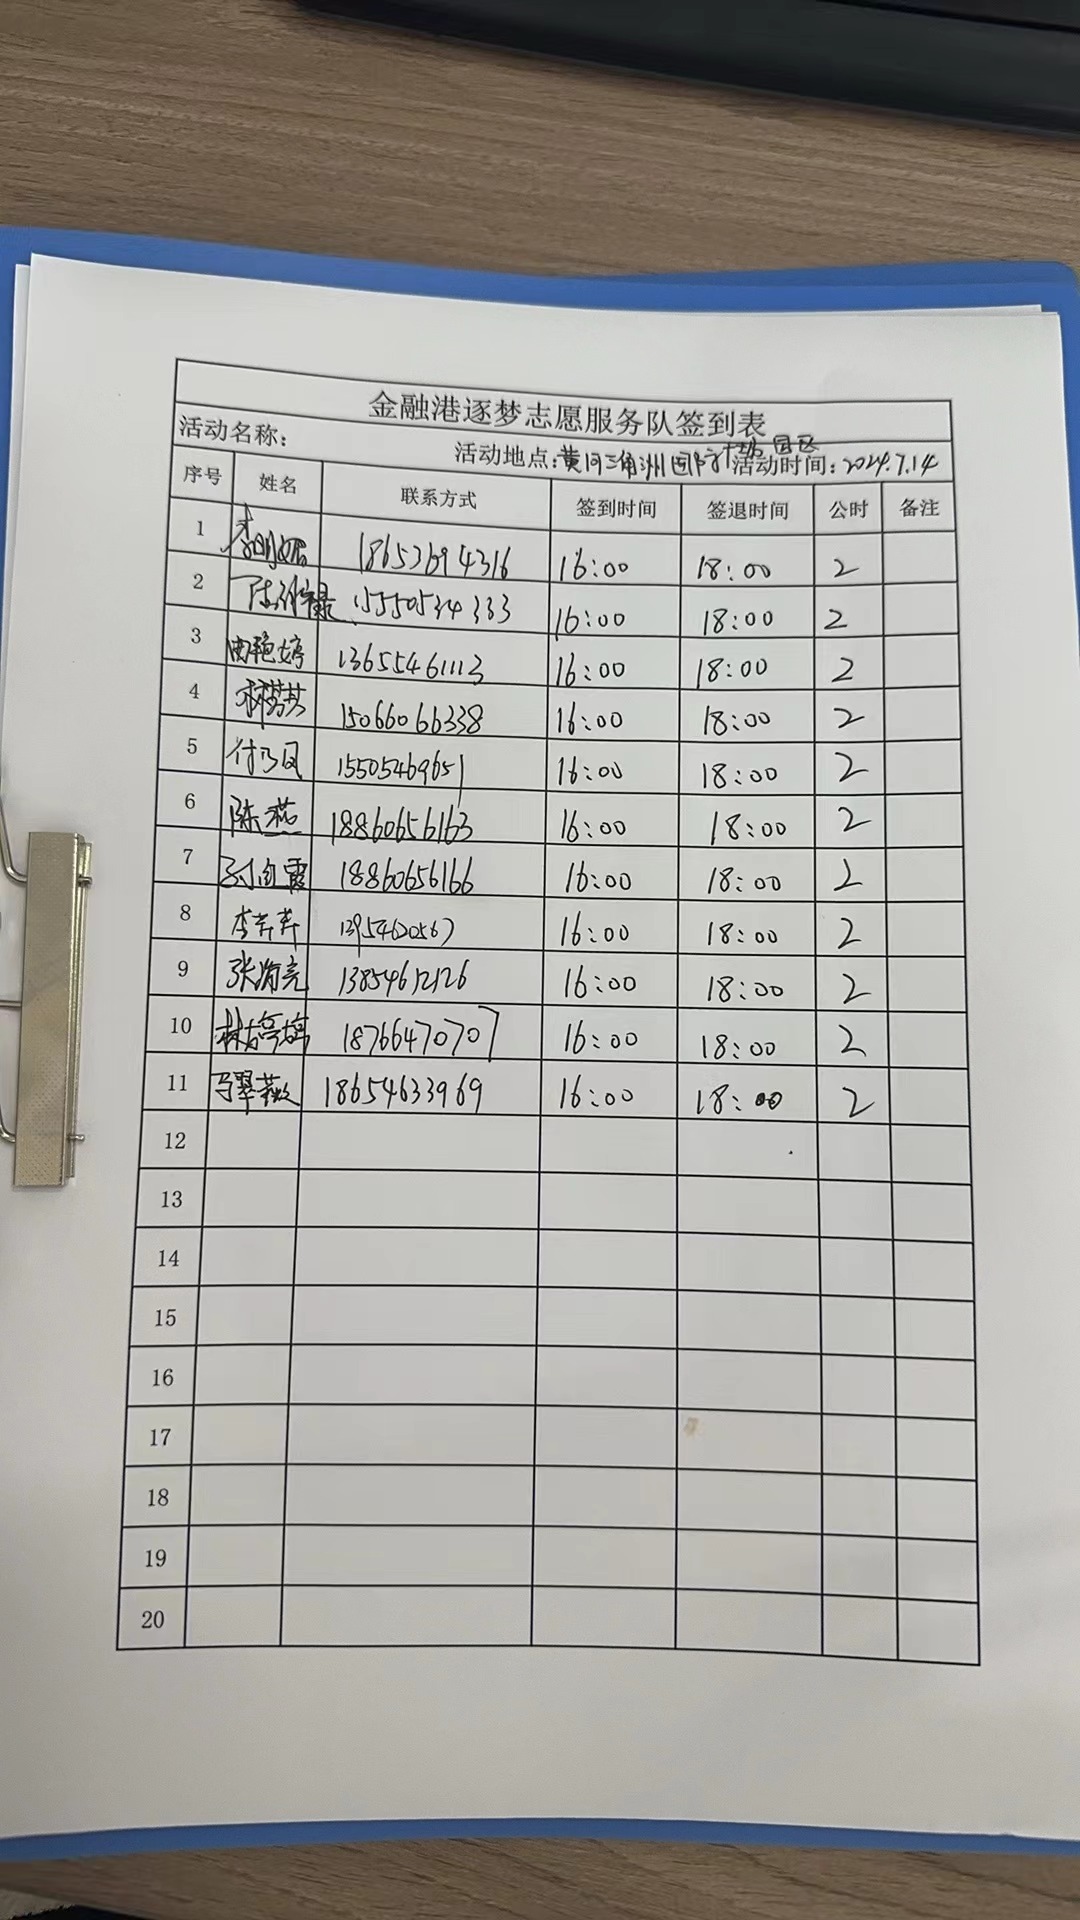 金融港逐梦志愿服务队签到表
活动名称： 活动地点：黄河三角洲 园区 活动时间：2024.7.14
序号 姓名 联系方式 签到时间 签退时间 公时 备注
1 16:00 18:00 2
2 15550534333 16:00 18:00 2
3 曲艳婷 13655461113 16:00 18:00 2
4 15066066338 16:00 18:00 2
5 付乃凤 15505469651 16:00 18:00 2
6 陈燕 18860656163 16:00 18:00 2
7 18860656166 16:00 18:00 2
8 李卉卉 16:00 18:00 2
9 张海亮 13854612126 16:00 18:00 2
10 林婷婷 18766470707 16:00 18:00 2
11 马翠薇 18654633969 16:00 18:00 2
12
13
14
15
16
17
18
19
20